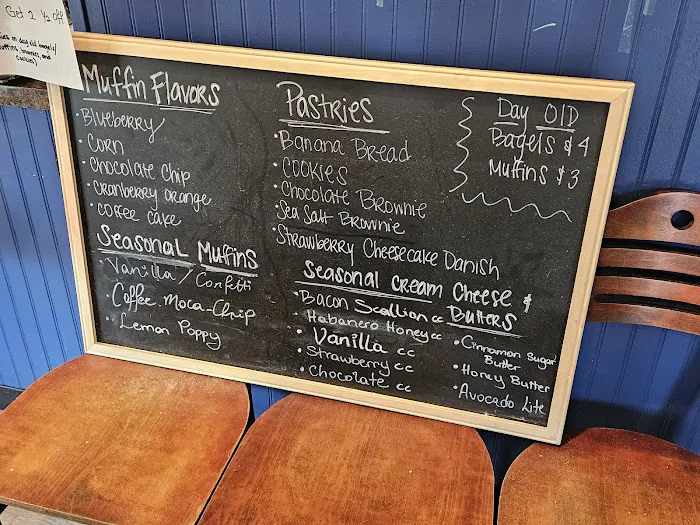 Get 2 1/2 off
Muffin Flavors
•Blueberry
•Corn
•Chocolate Chip
•Cranberry orange
•Coffee cake
Seasonal Muffins
•Vanilla / Confetti
•Coffee Moca-Chip
•Lemon Poppy
Pastries
•Banana Bread
•COOKIES
•Chocolate Brownie
•Sea Salt Brownie
•Strawberry Cheesecake Danish
Day OlD
Bagels $4
Muffins $3
Seasonal Cream Cheese &
Butters
•Bacon Scallion cc
•Habanero Honey cc
•Vanilla cc
•Strawberry cc
•Chocolate cc
•Cinnamon Sugar
Butter
•Honey Butter
•Avocado Lite